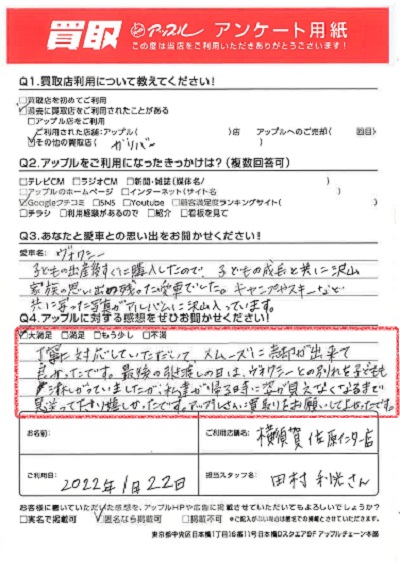 買取 アップル アンケート用紙
この度は当店をご利用いただきありがとうございます!
Q1.買取店利用について教えてください!
□買取店を初めてご利用
☑過去に買取店をご利用されたことがある
□アップル店をご利用
ご利用された店舗:アップル( )店 アップルへのご売却( 回目)
☑その他の買取店( ガリバー )
Q2.アップルをご利用になったきっかけは?(複数回答可)
□テレビCM □ラジオCM □新聞・雑誌(媒体名/ )
□アップルのホームページ □インターネット(サイト名 )
☑Googleクチコミ □SNS □Youtube □顧客満足度ランキングサイト( )
□チラシ □利用経験があるので □紹介 □看板を見て
Q3.あなたと愛車との思い出をお聞かせください!
愛車名: ヴォクシー
子どもの出産後すぐに購入したので、子どもの成長と共に沢山
家族の思い出の残った愛車でした。キャンプやスキーなど
共に写った写真がアルバムに沢山入っています。
Q4.アップルに対する感想をぜひお聞かせください!
☑大満足 □満足 □もう少し □不満
丁寧に対応していただいて、スムーズに売却が出来て
良かったです。最後の引き渡しの日は、ヴォクシーとの別れを子どもも
寂しがっていましたが、私達が帰る時に姿が見えなくなるまで
見送って下さり嬉しかったです。アップルさんに買取りをお願いして良かったです。
お名前:
ご利用店舗名: 横須賀佐原インター店
ご利用日: 2022年1月22日
担当スタッフ名: 田村 さん
お客様に書いていただいた感想を、アップルHPや広告に掲載させていただいてもよろしいでしょうか?
□実名で掲載可 ☑匿名なら掲載可 □掲載不可 ※ご記入がない場合は匿名での掲載とさせていただきます。
東京都中央区日本橋1丁目16番11号日本橋Dスクエア5F アップルチェーン本部